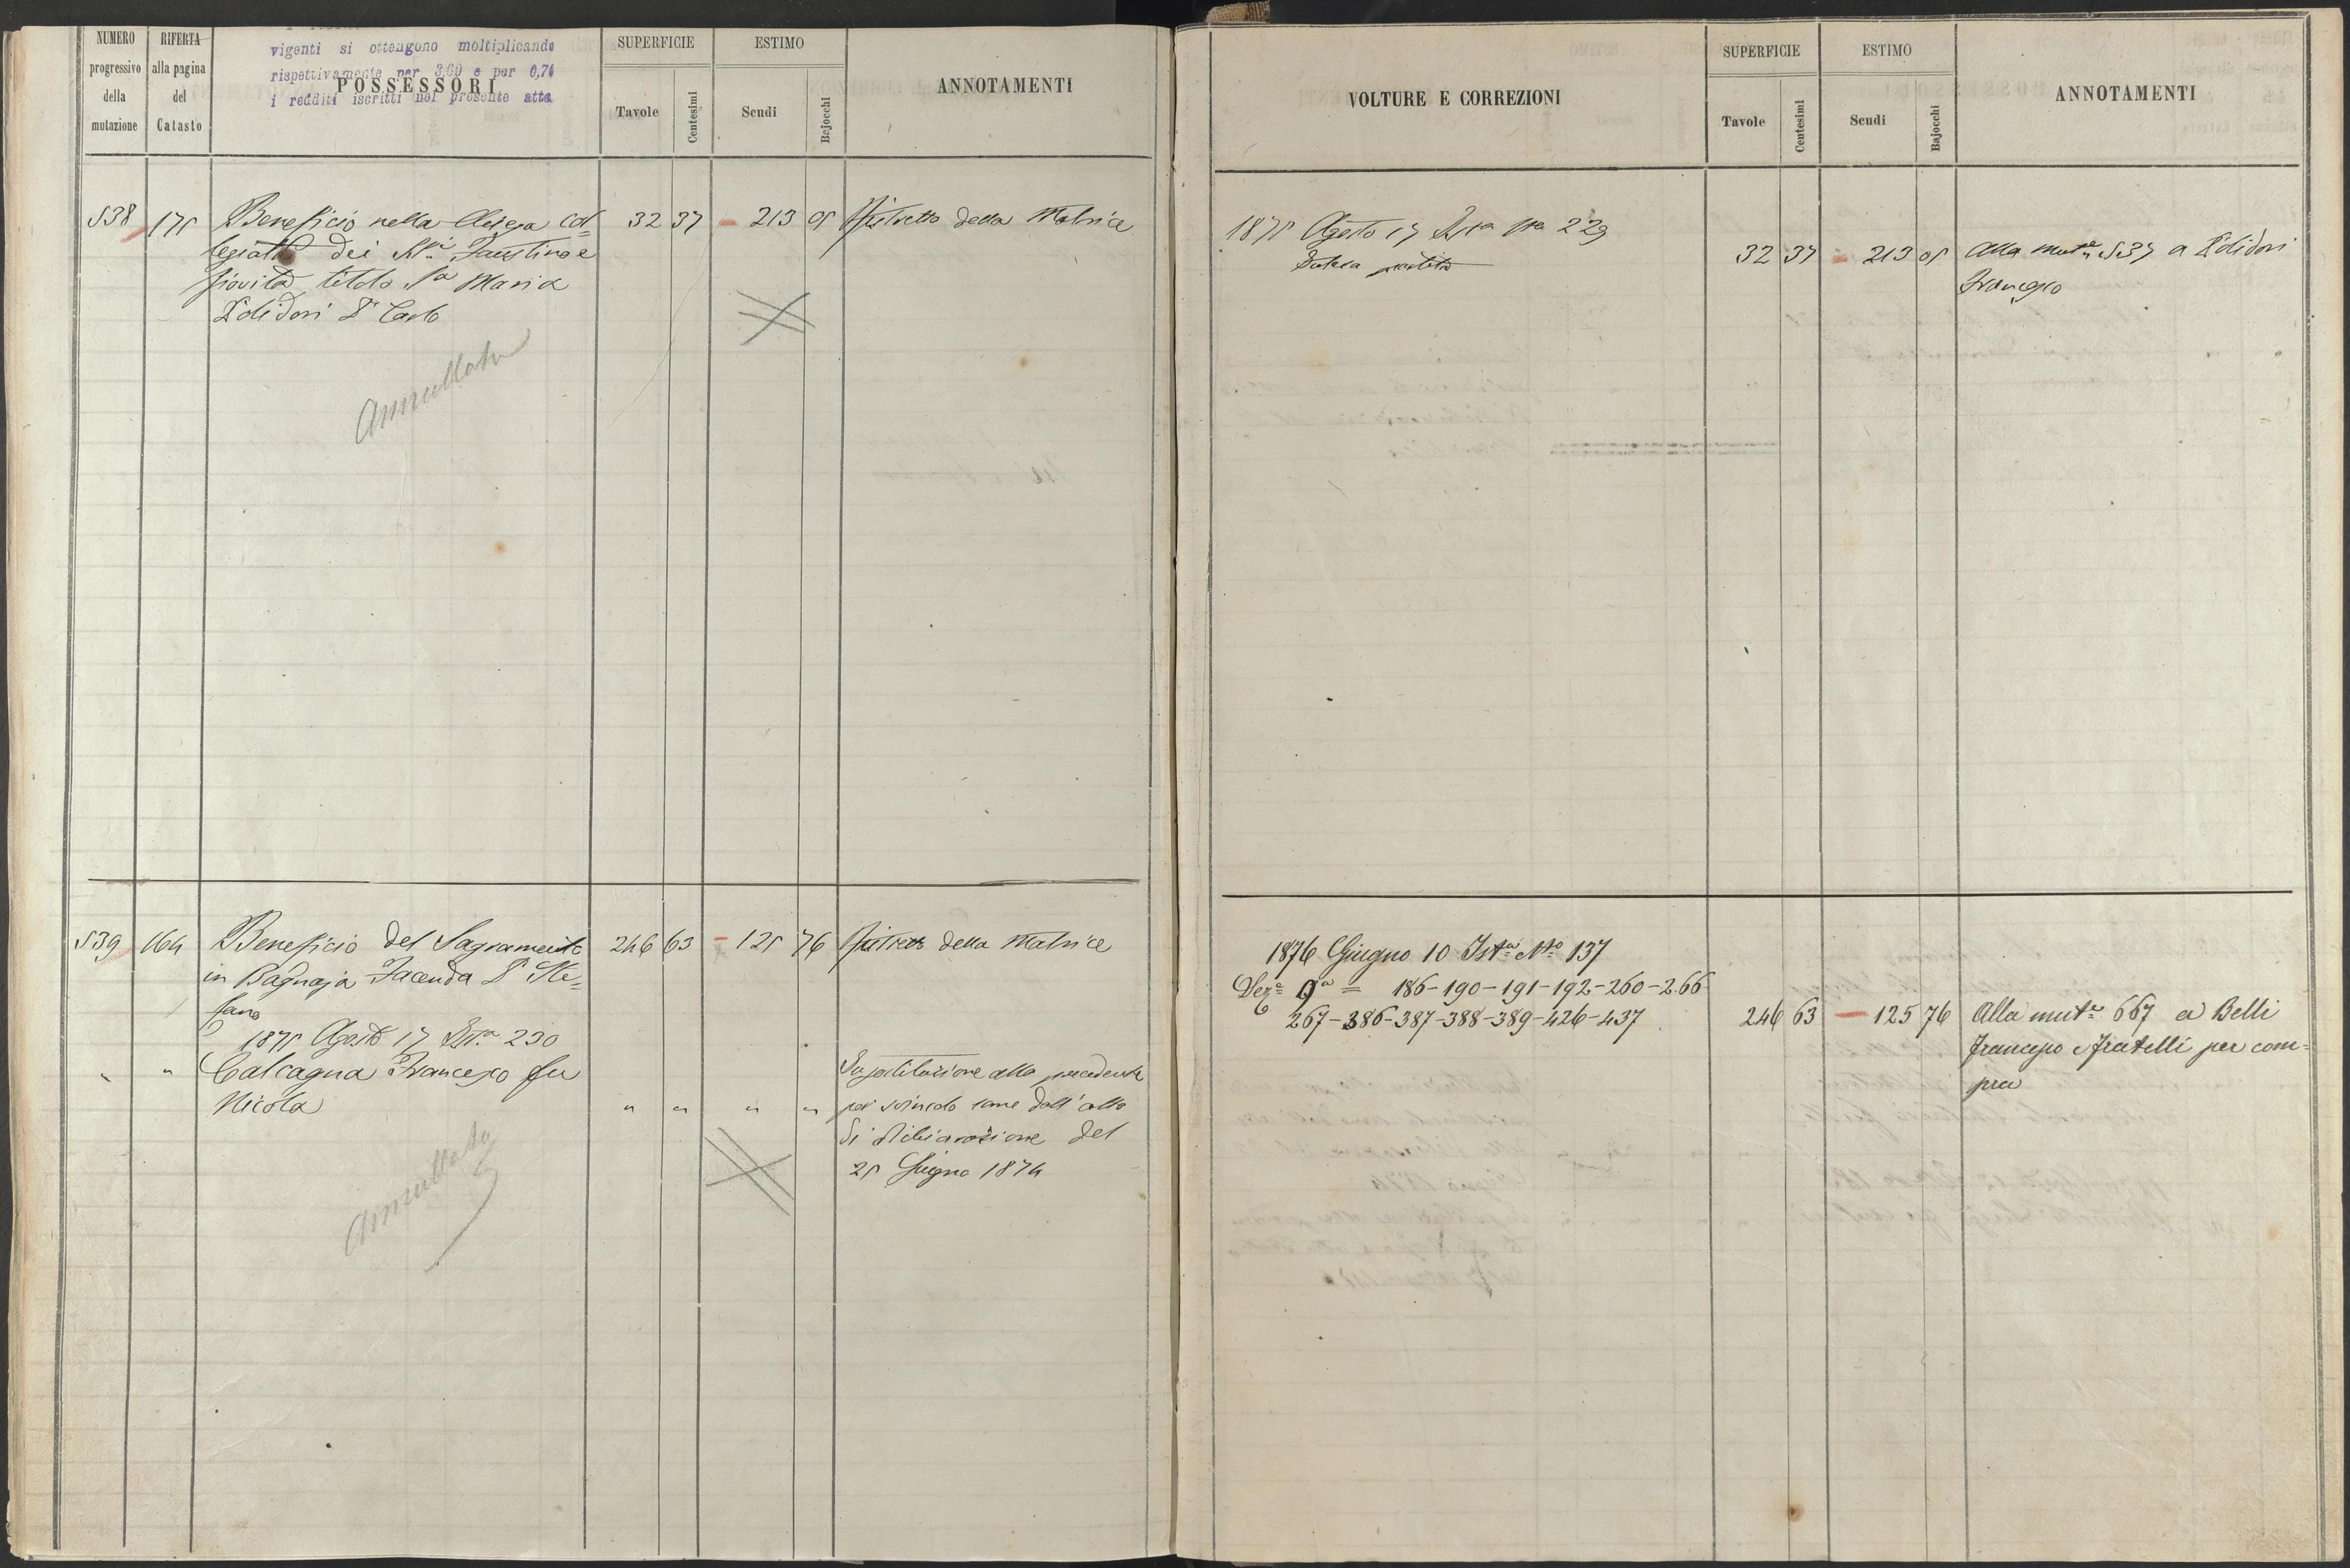 NUMERO progressivo della mutazione
RIFERTA alla pagina del Catasto
vigenti si ottengono moltiplicando
rispettivamente per 3,60 e per 0,74
i redditi iscritti nel presente atto
POSSESSORI
SUPERFICIE
Tavole
Centesimi
ESTIMO
Scudi
Bajocchi
ANNOTAMENTI
538 175 Beneficio nella Chiesa Col= 32 37 213 05 Ristretto della Matrice
legiata dei SSi Faustino e
Giovita titolo Sa Maria
Polidori D. Carlo
Annullata
539 164 Beneficio del Sagramento 246 63 - 125 76 Ristretto della Matrice
in Bagnaja Facenda D. Ste=
fano
1875 Agosto 17 Ista 230
" " Calcagna Francesco fu
Nicola " " " "
Sostituzione alla precedente
per svincolo come dall'atto
di dichiarazione del
25 Giugno 1874
Annullata
VOLTURE E CORREZIONI
SUPERFICIE
Tavole
Centesimi
ESTIMO
Scudi
Bajocchi
ANNOTAMENTI
1875 Agosto 17 Ista No 229
Intera partita 32 37 213 05 Alla muta 537 a Polidori
Francesco
1876 Giugno 10 Ista No 137
Seze 9a = 186-190-191-192-260-266
267-386-387-388-389-426-437 246 63 - 125 76 Alla muta 667 a Belli
Francesco e fratelli per com=
pra